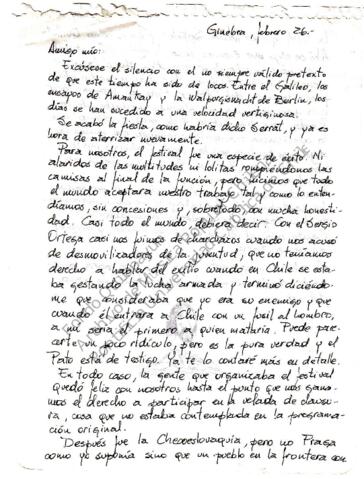 Ginebra, febrero 26.-
Amigo mío:
Excúsese el silencio con el no siempre válido pretexto
de que este tiempo ha sido de locos. Entre el Galileo, los
ensayos de Amankay y la Walpurgisnacht de Berlín, los
días se han sucedido a una velocidad vertiginosa.
Se acabó la fiesta, como habría dicho Serrat, y ya es
hora de aterrizar nuevamente.
Para nosotros, el festival fue una especie de éxito. Ni
alaridos de las multitudes ni lolitas rompiéndonos las
camisas al final de la función, pero hicimos que todo
el mundo aceptara nuestro trabajo tal y como lo enten-
díamos, sin concesiones y, sobretodo, con mucha honesti-
dad. Casi todo el mundo, debiera decir. Con el Sergio
Ortega casi nos fuimos de charchazos cuando nos acusó
de desmovilizadores de la juventud, que no teníamos
derecho a hablar del exilio cuando en Chile se esta-
ba gestando la lucha armada y terminó diciéndo-
me que consideraba que yo era su enemigo y que
cuando él entrara a Chile con un fusil al hombro,
a mí sería el primero a quien mataría. Puede pare-
certe un poco ridículo, pero es la pura verdad y el
Pato está de testigo. Ya te lo contaré más en detalle.
En todo caso, la gente que organizaba el festival
quedó feliz con nosotros hasta el punto que nos gana-
mos el derecho a participar en la velada de clausu-
ra, cosa que no estaba contemplada en la programa-
ción original.
Después fue la Checoeslovaquia, pero no Praga
como yo suponía sino que un pueblo en la frontera con